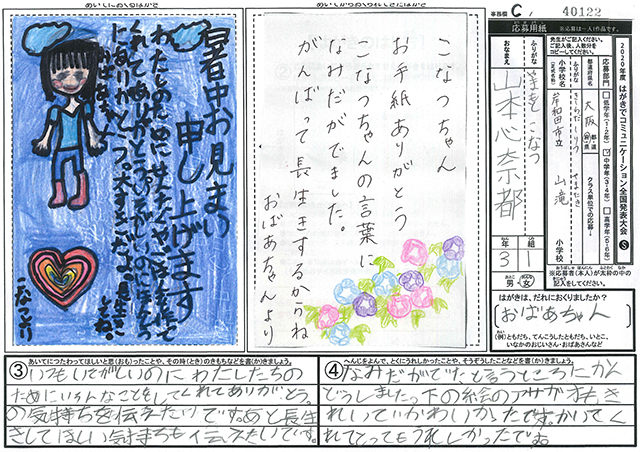 あいてにおくるはがき
暑中お見まい
申し上げます
こなつより
あいてからおくられてきたはがき
こなつちゃん
お手紙ありがとう
こなつちゃんの言葉に
なみだがでました。
がんばって長生きするからね
おばあちゃんより
事務局 C, 40122
応募用紙
※応募は一人1作品です。
先生がご記入ください。
ご記入後、人数分を
コピーしてください。
2020年度 はがきでコミュニケーション全国発表大会 S
応募部門
低学年(1・2年)
中学年(3・4年)
高学年(5・6年)
クラス単位での応募
都道府県名
大阪
小学校名
岸和田市立
山滝
小学校
ふりがな
やまもと こなつ
おなまえ
山本心奈都
年 組
3 1
男 女
※応募者(本人)が太枠の中の
記入をしてください。
はがきは、だれにおくりましたか?
おばあちゃん
(例)ともだち、てんこうしたともだち、いとこ、
いなかのおじいさん・おばあさんなど
③ あいてにつたわってほしいと思(おも)ったことや、その時(とき)のきもちなどを書(か)きましょう。
いつもいそがしいのにわたしたちの
ためにいろんなことをしてくれてありがとう。
の気持ちを伝えたいです。あと長生
きしてほしい気持ちも伝えたいです。
④ へんじをよんで、とくにうれしかったことや、そうぞうしたことなどを書(か)きましょう。
なみだがでたと言うところにかん
どうしました。下の絵のアサガオもき
れいでかわいかったです。かいてく
れてとってもうれしかったです。